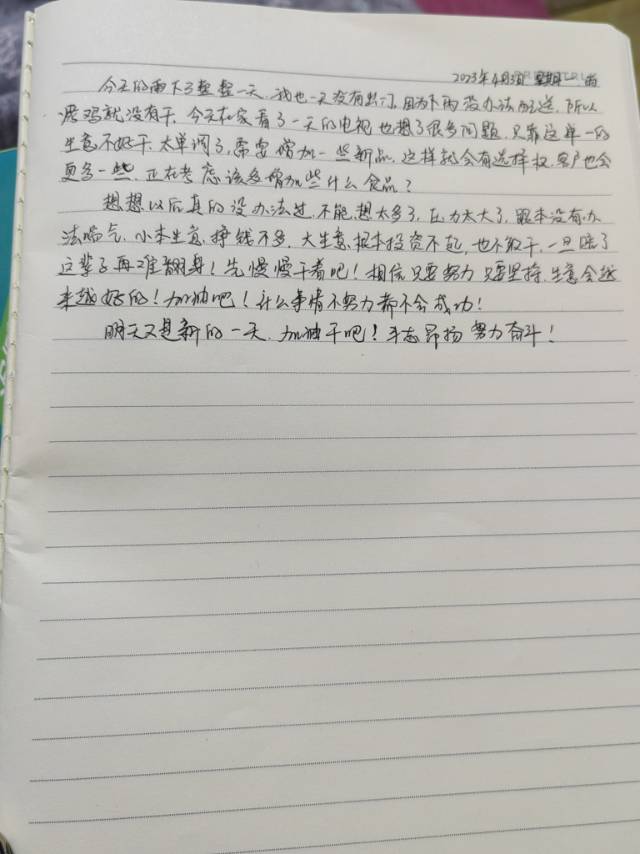 2023年4月 星期 雨
今天的雨下了整整一天,我也一天没有出门,因为下雨没办法配送,所以
就没有干,今天在家看了一天的电视,也想了很多问题,只靠这单一的
生意不好干,太单调了,需要增加一些新品,这样就会有选择权,客户也会
更多一些,正在考虑该多增加些什么食品?
想想以后真的没办法过,不能想太多了,压力太大了,跟本没有办
法喘气,小本生意,挣钱不多,大生意,根本投资不起,也不敢干,一旦赔了
这辈子再难翻身!先慢慢干着吧!相信只要努力,只要坚持,生意会越
来越好的!加油吧!什么事情不努力都不会成功!
明天又是新的一天,加油干吧!斗志昂扬,努力奋斗!